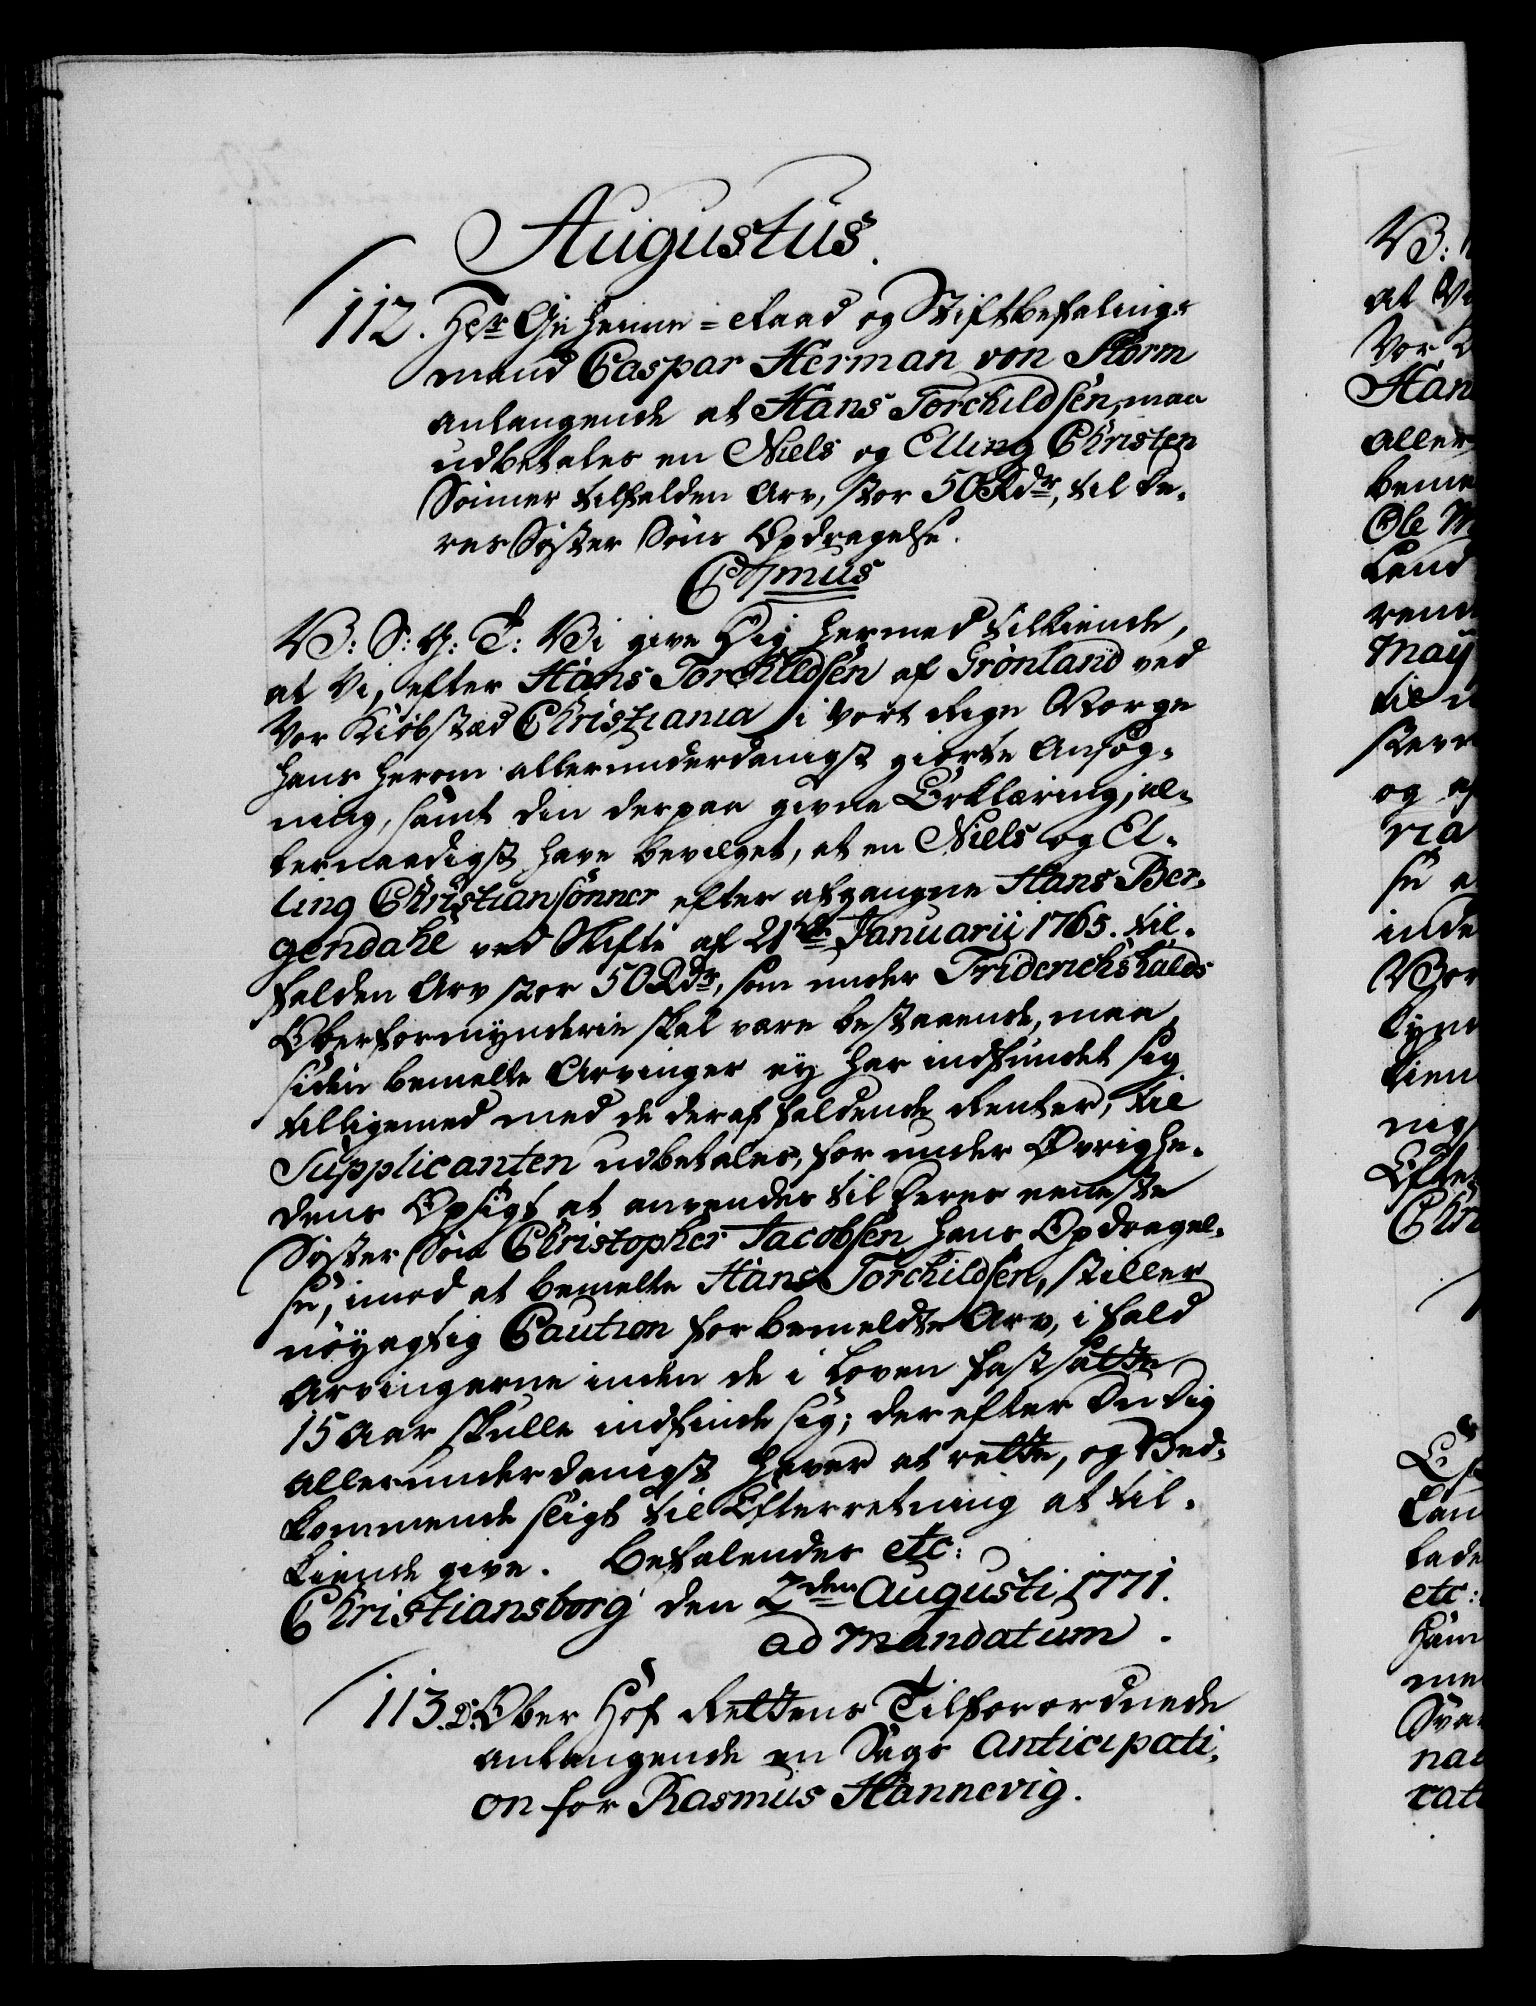 Augustus.
112. Hr Geheime=Raad og Stiftbefalings
mand Caspar Herman von Storm
anlangende at Hans Torchildsen, maa
udbetales en Niels og Elling Christen
Sønner tilfalden Arv, stor 50 Rdr, til de-
res Søster Søns Opdragelse.
C7mus
V: S: G: T: Vi give Dig hermed tilkiende,
at Vi, efter Hans Torchildsen af Grønland ved
Vor Kiøbstad Christiania i Vort Rige Norge
hans herom allerunderdanigst giorte Ansøg-
ning, samt din derpaa givne Erklæring, al-
lernaadigst have bevilget, at en Niels og El-
ling Christiansønner efter afgangne Hans Ber-
gendahl ved Skifte af 21de Januarii 1765. til-
falden Arv stor 50 Rdr, som under Friderichshalds
Oberformynderie skal være bestaaende, maa,
siden bemelte Arvinger ey har indfundet sig
tilligemed med de deraf faldende Renter, til
Supplicanten udbetales, for under Øvrighe-
dens Opsigt at anvendes til deres eeneste
Søster Søn Christopher Jacobsen hans Opdragel-
se, imod at bemelte Hans Torchildsen, stiller
nøyagtig Caution for bemeldte Arv, i fald
Arvingerne inden de i Loven fastsatte
15 Aar skulle indfinde sig; derefter Du dig
allerunderdanigst haver at rette, og Ved-
kommende sligt til Efterretning at til-
kiende give. Befalendes etc:
Christiansborg den 2den Augusti 1771.
ad Mandatum.
113. D. Ober Hof Rettens Tilforordnede
anlangende en Sags Anticipati-
on for Rasmus Hannevig.